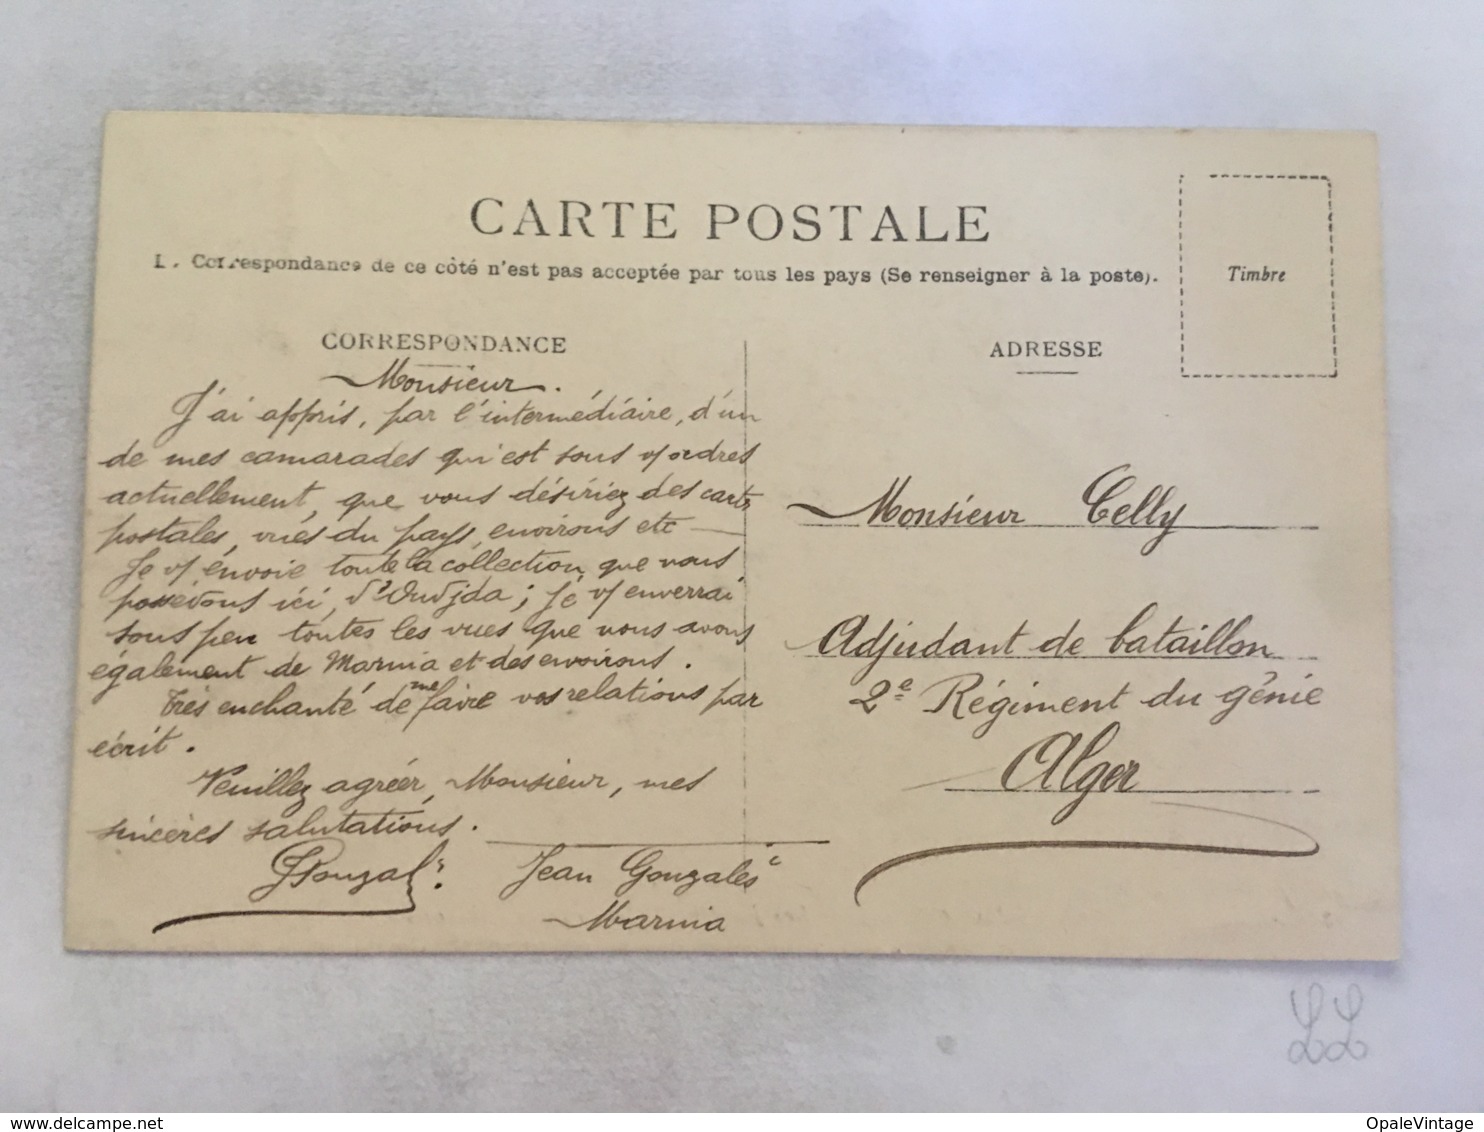 CARTE POSTALE
La Correspondance de ce côté n'est pas acceptée par tous les pays (Se renseigner à la poste).
Timbre
CORRESPONDANCE
Monsieur.
J'ai appris, par l'intermédiaire, d'un
de mes camarades qui est sous v/ ordres
actuellement, que vous désiriez des cartes
postales, vues du pays, environs etc —
Je v/ envoie toute la collection, que nous
possédons ici, d'Oudjda ; je v/ enverrai
sous peu toutes les vues que nous avons
également de Marnia et des environs.
Très enchanté de me faire vos relations par
écrit.
Veuillez agréer, Monsieur, mes
sincères salutations.
Jean Gonzalès
Marnia
ADRESSE
Monsieur Celly
Adjudant de bataillon
2e Régiment du génie
Alger
LL
delcampe.net
OpaleVintage